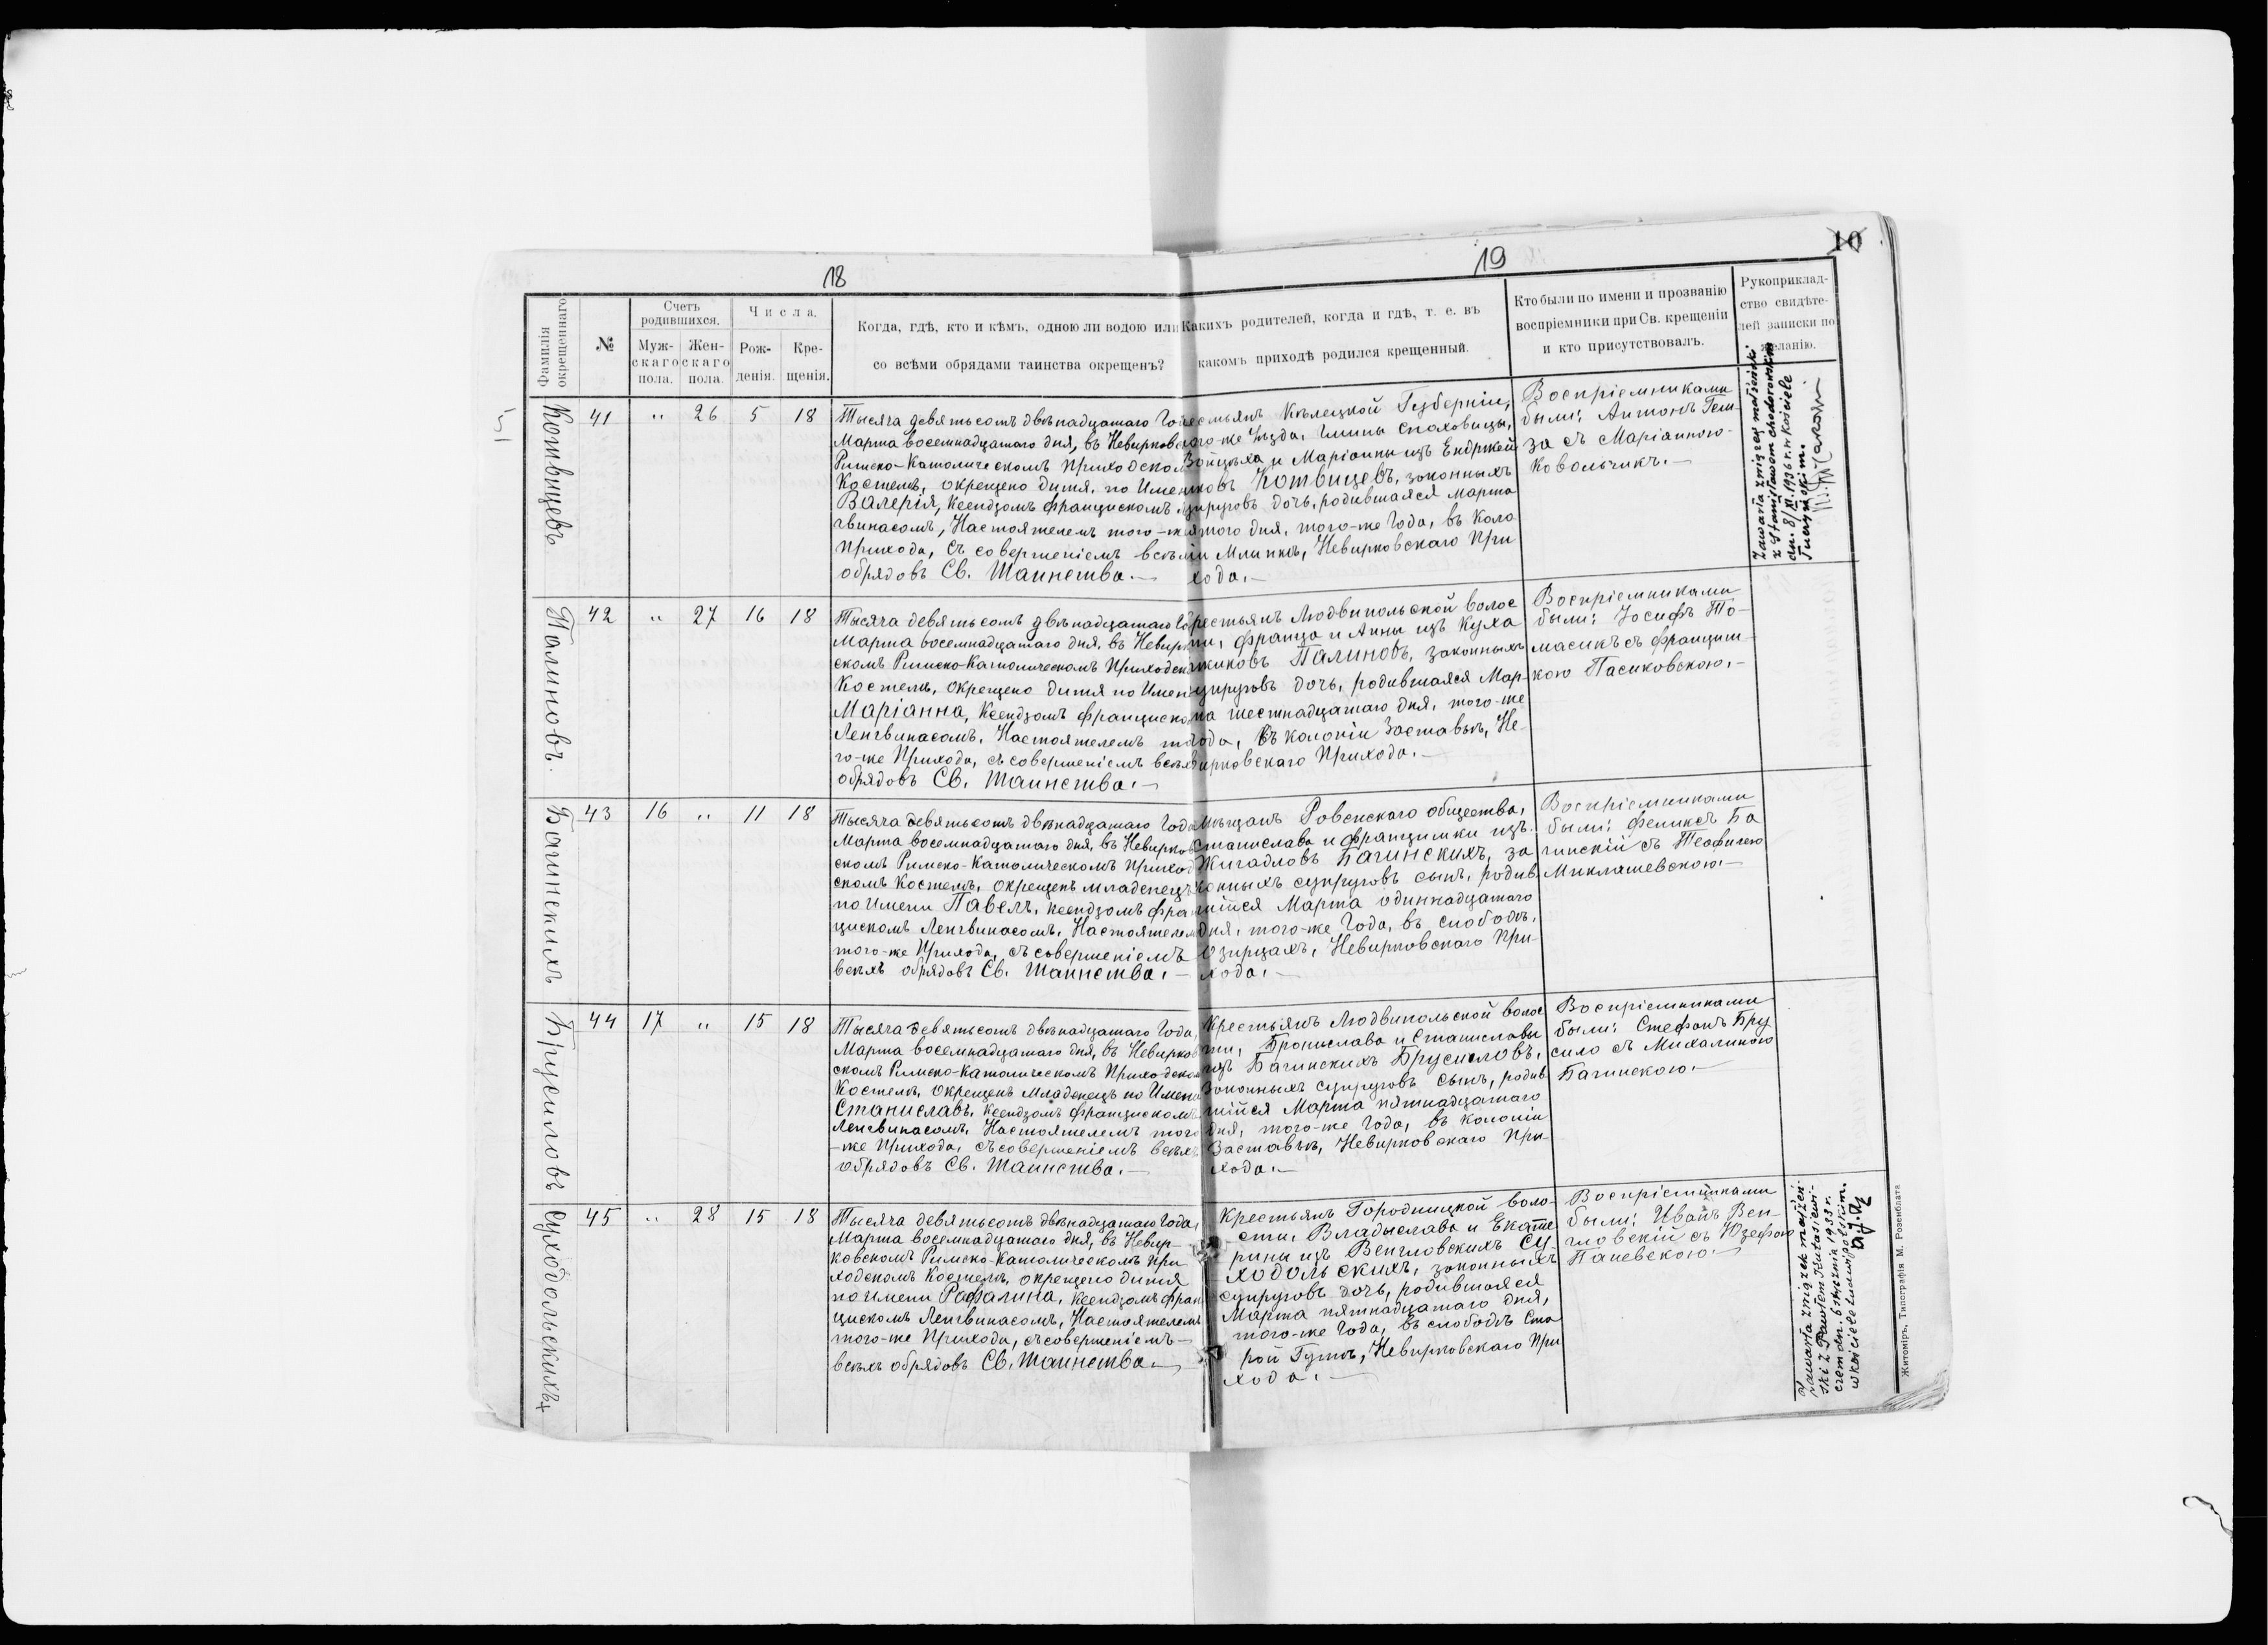 18
19
10
Фамилія окрещеннаго.
№
Счетъ родившихся.
Муж- скаго пола.
Жен- скаго пола.
Числа.
Рож- денія.
Кре- щенія.
Когда, гдѣ, кто и кѣмъ, одною ли водою или
со всѣми обрядами таинства окрещенъ?
Какихъ родителей, когда и гдѣ, т. е. въ
какомъ приходѣ родился крещенный.
Кто были по имени и прозванію
воспріемники при Св. крещеніи
и кто присутствовалъ.
Рукоприклад-
ство свидѣте-
лей записки по
желанію.
Котвицевъ
41 " 26 5 18
Тысяча девятьсотъ двѣнадцатаго Го
Марта восемнадцатаго дня, въ Невирков
Римско-Католическомъ Приходском
Костелѣ, окрещено дитя, по Имен
Валерія, Ксендзомъ Францискомъ
гвинасомъ, Настоятелемъ того-же
Прихода, съ совершеніемъ всѣхъ
обрядовъ Св. Таинства.—
естьянъ Кѣлецкой Губерніи,
ого-же Уѣзда, Гмины
Войцѣха и Маріанны изъ Ендржей
ковъ Котвицевъ, законныхъ
супруговъ дочь, родившаяся Марта
пятого дня, того-же Года, въ Коло
ніи Млинкѣ, Невирковскаго При
хода.—
Воспріемниками
были: Антонъ Гем-
за съ Маріанною
Ковольчикъ.—
Zawarła związek małżeński
z Stanisławem Chodorowskim
dn. 8/XI. 1936 r. w Kościele
Tuczyńskim.
Палиновъ.
42 " 27 16 18
Тысяча девятьсотъ двѣнадцатаго Го
Марта восемнадцатаго дня, въ Невирк
скомъ Римско-Католическомъ Приходск
Костелѣ, Окрещено дитя по Имен
Маріанна, Ксендзомъ Франциско
Ленгвинасомъ, Настоятелемъ то
го-же Прихода, съ совершеніемъ всѣх
обрядовъ Св. Таинства.—
рестьянъ Людвипольской волос
ти, Франца и Анны изъ Куха
жиковъ Палиновъ, законныхъ
супруговъ дочь, родившаяся Мар-
та шестнадцатаго дня, того-же
Года, въ колоніи Заставьѣ, Не-
вирковскаго Прихода.—
Воспріемниками
были: Іосифъ То-
масикъ съ Францишкою Пасиковскою.—
Багинскихъ
43 16 " 11 18
Тысяча девятьсотъ двѣнадцатаго Года
Марта восемнадцатаго дня, въ Невирков
скомъ Римско-Католическомъ Приход
скомъ Костелѣ, Окрещенъ младенецъ
по Имени Павелъ, Ксендзомъ Фран
цискомъ Ленгвинасомъ, Настоятелем
того-же Прихода, съ совершеніемъ
всѣхъ обрядовъ Св. Таинства.—
Мѣщанъ Ровенскаго общества,
Станислава и Францишки изъ
Жигадловъ Багинскихъ, за
конныхъ супруговъ сынъ, родив
шійся Марта одиннадцатаго
дня, того-же Года, въ слободѣ
Озирцахъ, Невирковскаго При-
хода.—
Воспріемниками
были: Феликсъ Ба
гинскій съ Теофилею
Миклашевскою.—
Брусиловъ
44 17 " 15 18
Тысяча девятьсотъ двѣнадцатаго Года,
Марта восемнадцатаго дня, въ Невирков
скомъ Римско-Католическомъ Приходском
Костелѣ, Окрещенъ Младенецъ по Имени
Станиславъ, Ксендзомъ Францискомъ
Ленгвинасомъ, Настоятелемъ того
-же Прихода, съ совершеніемъ всѣхъ
обрядовъ Св. Таинства.—
Крестьянъ Людвипольской волос
ти, Бронислава и Станиславы
изъ Багинскихъ Брусиловъ,
законныхъ супруговъ сынъ, родив
шійся Марта пятнадцатаго
дня, того-же Года, въ колоніи
Заставьѣ, Невирковскаго При-
хода.—
Воспріемниками
были: Стефанъ Бру
сило съ Михалиною
Багинскою.—
Суходольскихъ
45 " 28 15 18
Тысяча девятьсотъ двѣнадцатаго Года,
Марта восемнадцатаго дня, въ Невир-
ковскомъ Римско-Католическомъ При
ходскомъ Костелѣ, окрещено дитя
по Имени Рафалина, Ксендзомъ Фран
цискомъ Ленгвинасомъ, Настоятелемъ
того-же Прихода, съ совершеніемъ—
всѣхъ обрядовъ Св. Таинства.—
Крестьянъ Городницкой воло-
сти, Владыслава и Екате
рины изъ Венгловскихъ Су-
ходольскихъ, законныхъ
супруговъ дочь, родившаяся
Марта пятнадцатаго дня,
того-же Года, въ слободѣ Ста
рой Гутѣ, Невирковскаго При
хода.—
Воспріемниками
были: Иванъ Вен-
гловскій съ Юзефою
Паневскою.—
Zawarła związek małżeń-
ski z Pawłem Kutasiewi-
czem dn. 6 stycznia 1933 r.
w kościele Ludwipolskim.
Житоміръ, Типографія М. Розенблата